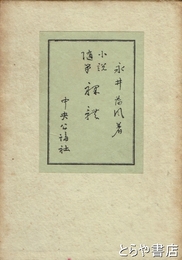 永井荷風著
小説
随筆
裸体
中央公論社
とらや書店